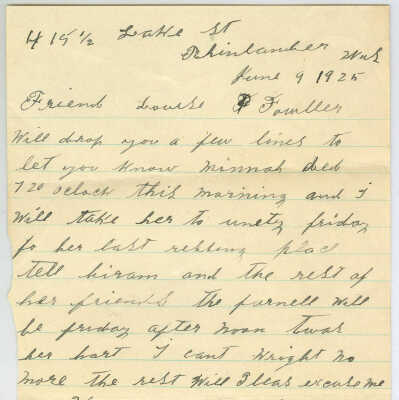 415½ Lake St
Rhinlander Wis
June 9 1925
Friend Louise Fowller
Will drop you a few lines to
let you know minnah died
7 20 oclock this morning and I
Will take her to unety friday
fo her last resting plac
tell hiram and the rest of
her friends the furnell Will
be friday after noon twas
her hart I cant Wright no
more the rest Will Pleas excuse me